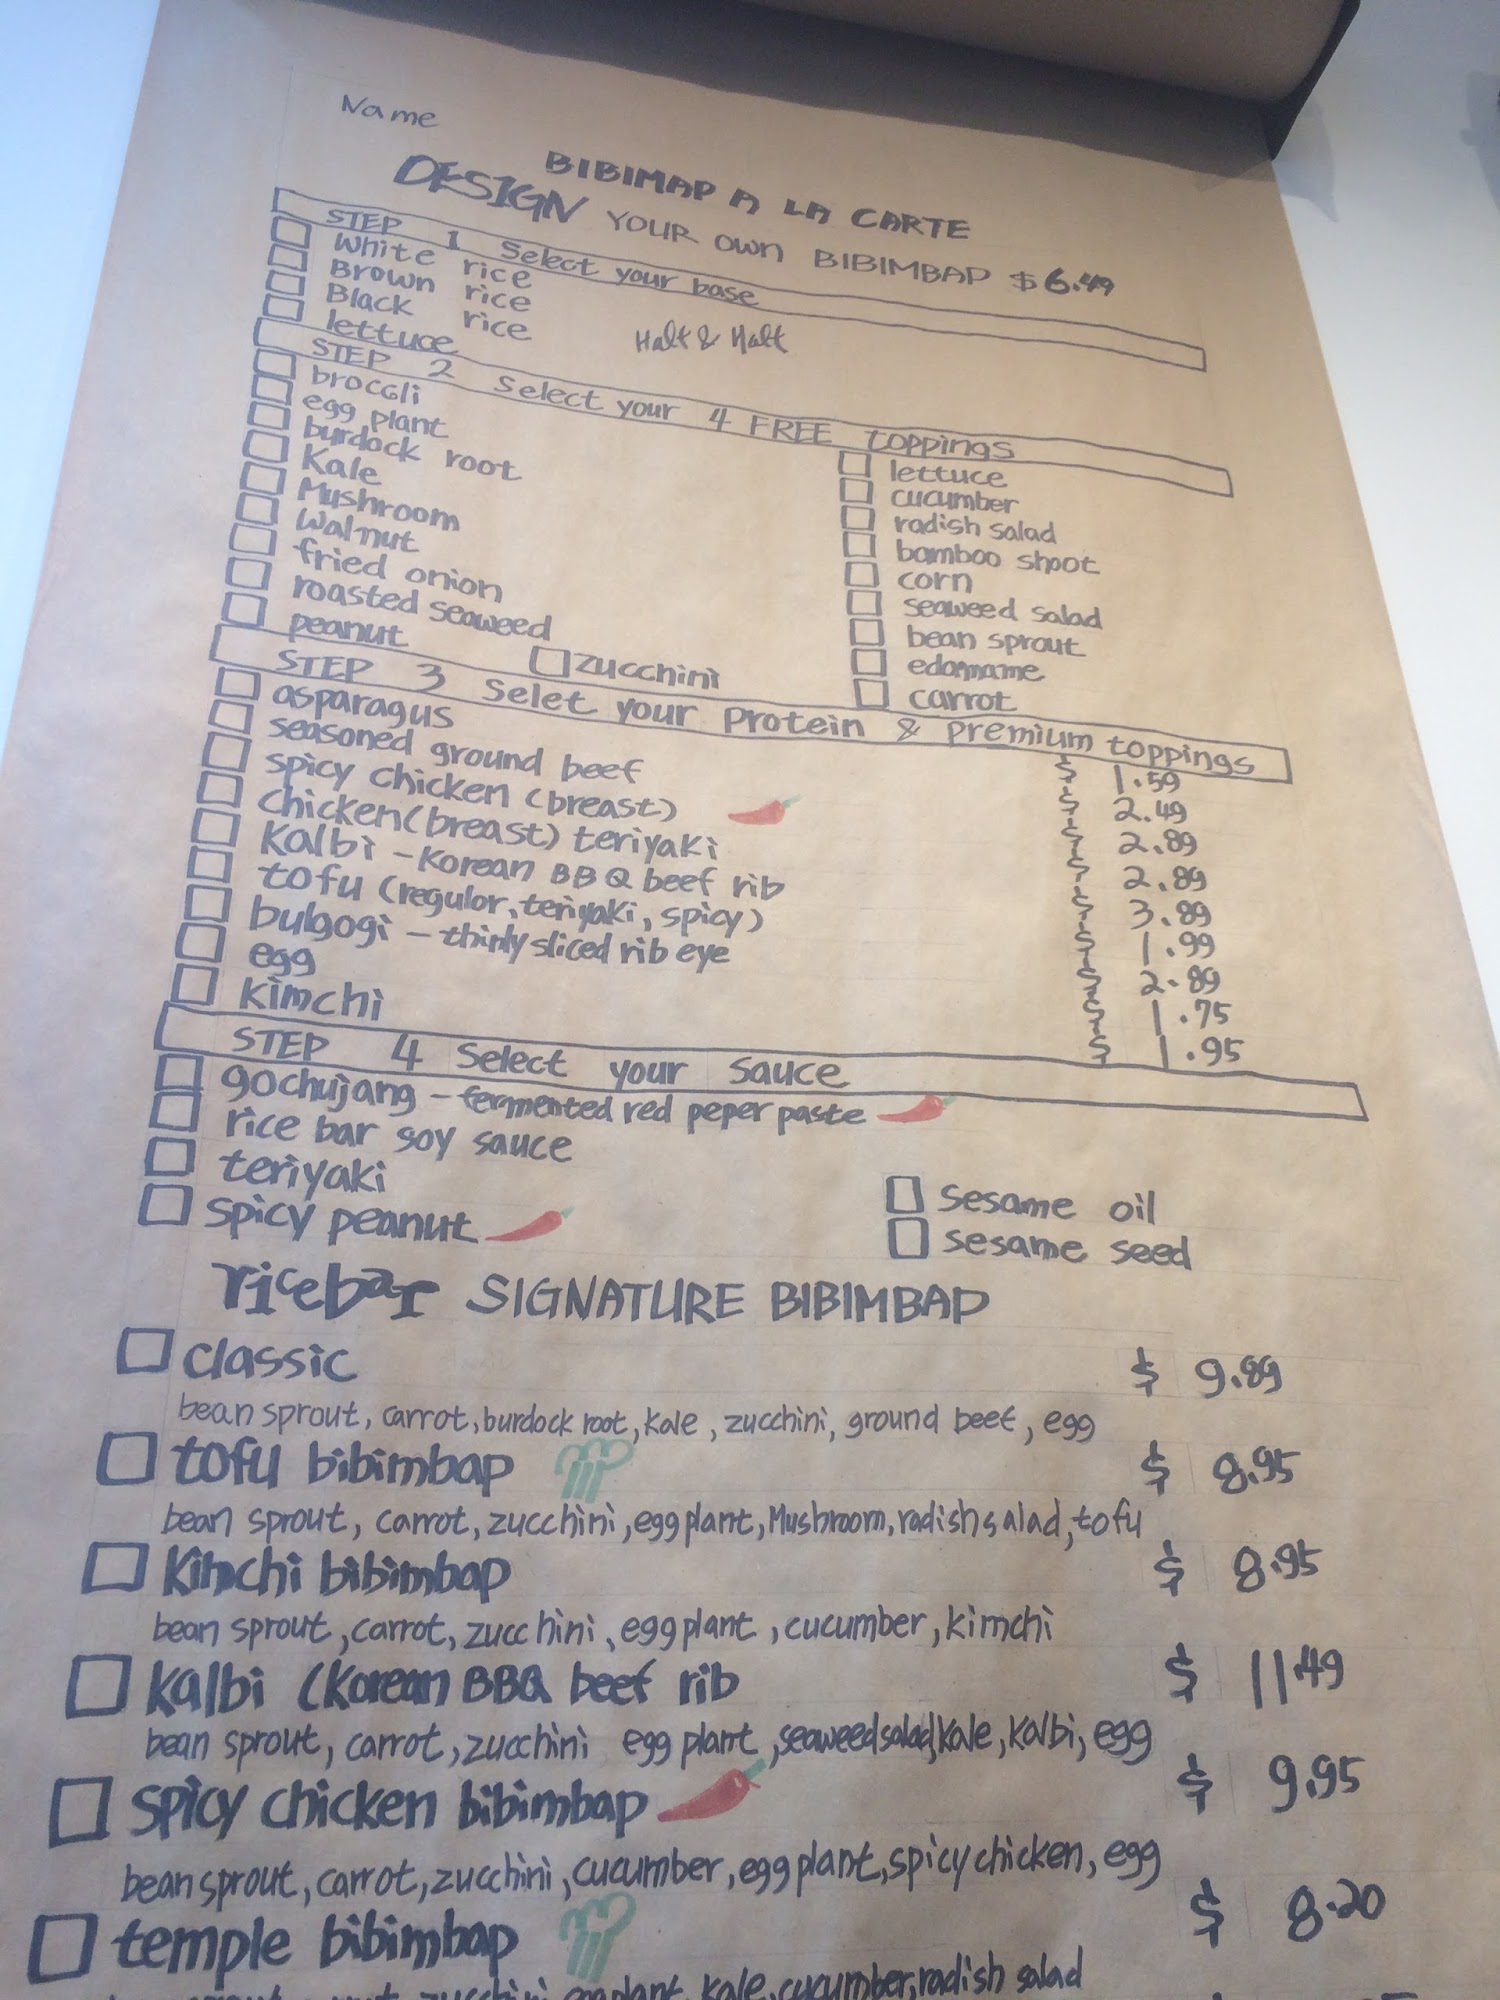 Name
BIBIMAP A LA CARTE
DESIGN YOUR OWN BIBIMBAP $6.49
STEP 1 Select your base
White rice
Brown rice
Black rice
lettuce
Half & Half
STEP 2 Select your 4 FREE toppings
broccoli
egg plant
burdock root
Kale
Mushroom
Walnut
fried onion
roasted seaweed
peanut
zucchini
lettuce
cucumber
radish salad
bamboo shoot
corn
seaweed salad
bean sprout
edamame
carrot
STEP 3 Selet your protein & premium toppings
asparagus $ 1.59
seasoned ground beef $ 2.49
spicy chicken (breast) $ 2.89
chicken (breast) teriyaki $ 2.89
Kalbi - Korean BBQ beef rib $ 3.89
tofu (regular, teriyaki, spicy) $ 1.99
bulgogi - thinly sliced rib eye $ 2.89
egg $ 1.75
kimchi $ 1.95
STEP 4 Select your sauce
gochujang - fermented red peper paste
rice bar soy sauce
teriyaki
spicy peanut
sesame oil
sesame seed
ricebar SIGNATURE BIBIMBAP
classic $ 9.89
bean sprout, carrot, burdock root, kale, zucchini, ground beef, egg
tofu bibimbap $ 8.95
bean sprout, carrot, zucchini, egg plant, Mushroom, radish salad, tofu
kimchi bibimbap $ 8.95
bean sprout, carrot, zucchini, egg plant, cucumber, kimchi
kalbi (Korean BBQ beef rib $ 11.49
bean sprout, carrot, zucchini egg plant, seaweed salad, kale, kalbi, egg
spicy chicken bibimbap $ 9.95
bean sprout, carrot, zucchini, cucumber, egg plant, spicy chicken, egg
temple bibimbap $ 8.20
zucchini, egg plant, kale, cucumber, radish salad